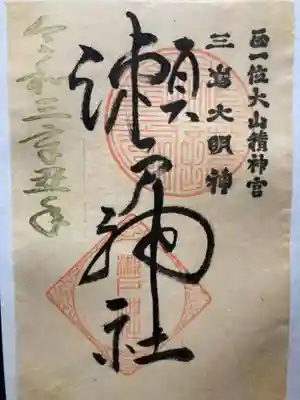 正一位大山積神宮
三嶌大明神
瀬戸神社
令和三辛丑年